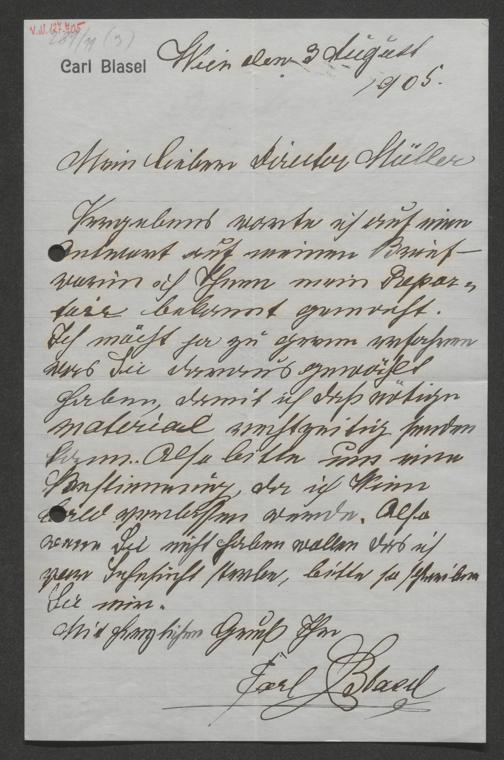 V.N. 127.705
Carl Blasel
Wien den 3 August
1905.
Mein lieber Director Müller
Vergebens warte ich auf eine
Antwort auf meinen Brief
worin ich Ihnen mein Reper-
toir bekannt gemacht.
Ich möcht ja zu gerne erfahren
was Sie daraus gewählt
haben, damit ich das nötige
material rechtzeitig senden
kann. Also bitte um eine
Bestimmung, da ich Wien
bald verlassen werde. Also
wenn Sie nicht haben wollen das ich
vor Sehnsicht sterbe, bitte so schreiben
Sie mir.
Mit herzlichen Gruß Ihr
Carl Blasel